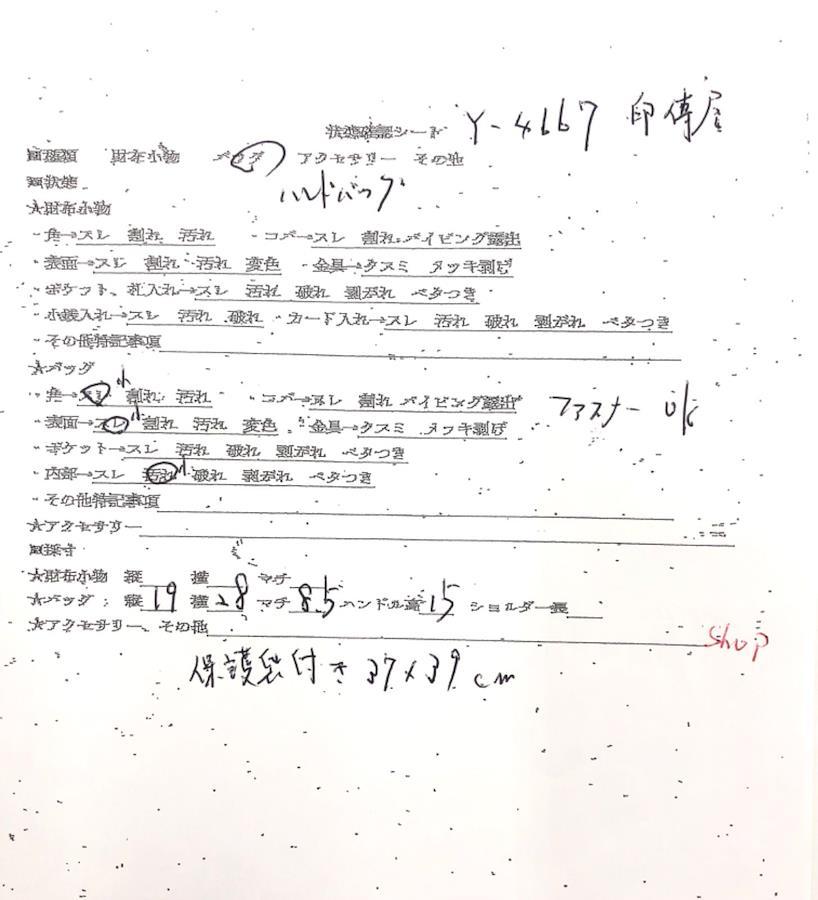 Y-4667 印傳屋
状態確認シート
■種類 財布小物 バッグ アクセサリー その他
■状態 ハンドバッグ
★財布小物
・角→スレ 割れ 汚れ ・コバ→スレ 割れ パイピング露出
・表面→スレ 割れ 汚れ 変色 ・金具→クスミ メッキ剥げ
・ポケット、札入れ→スレ 汚れ 破れ 剥がれ ベタつき
・小銭入れ→スレ 汚れ 破れ ・カード入れ→スレ 汚れ 破れ 剥がれ ベタつき
・その他特記事項
★バッグ
・角→スレ小 割れ 汚れ ・コバ→スレ 割れ パイピング露出 ファスナー OK
・表面→スレ小 割れ 汚れ 変色 ・金具→クスミ メッキ剥げ
・ポケット→スレ 汚れ 破れ 剥がれ ベタつき
・内部→スレ 汚れ小 破れ 剥がれ ベタつき
・その他特記事項
★アクセサリー
■採寸
★財布小物 縦 横 マチ
★バッグ 縦 19 横 28 マチ 8.5 ハンドル高 15 ショルダー長
★アクセサリー、その他
shop
保護袋付き 37×39cm